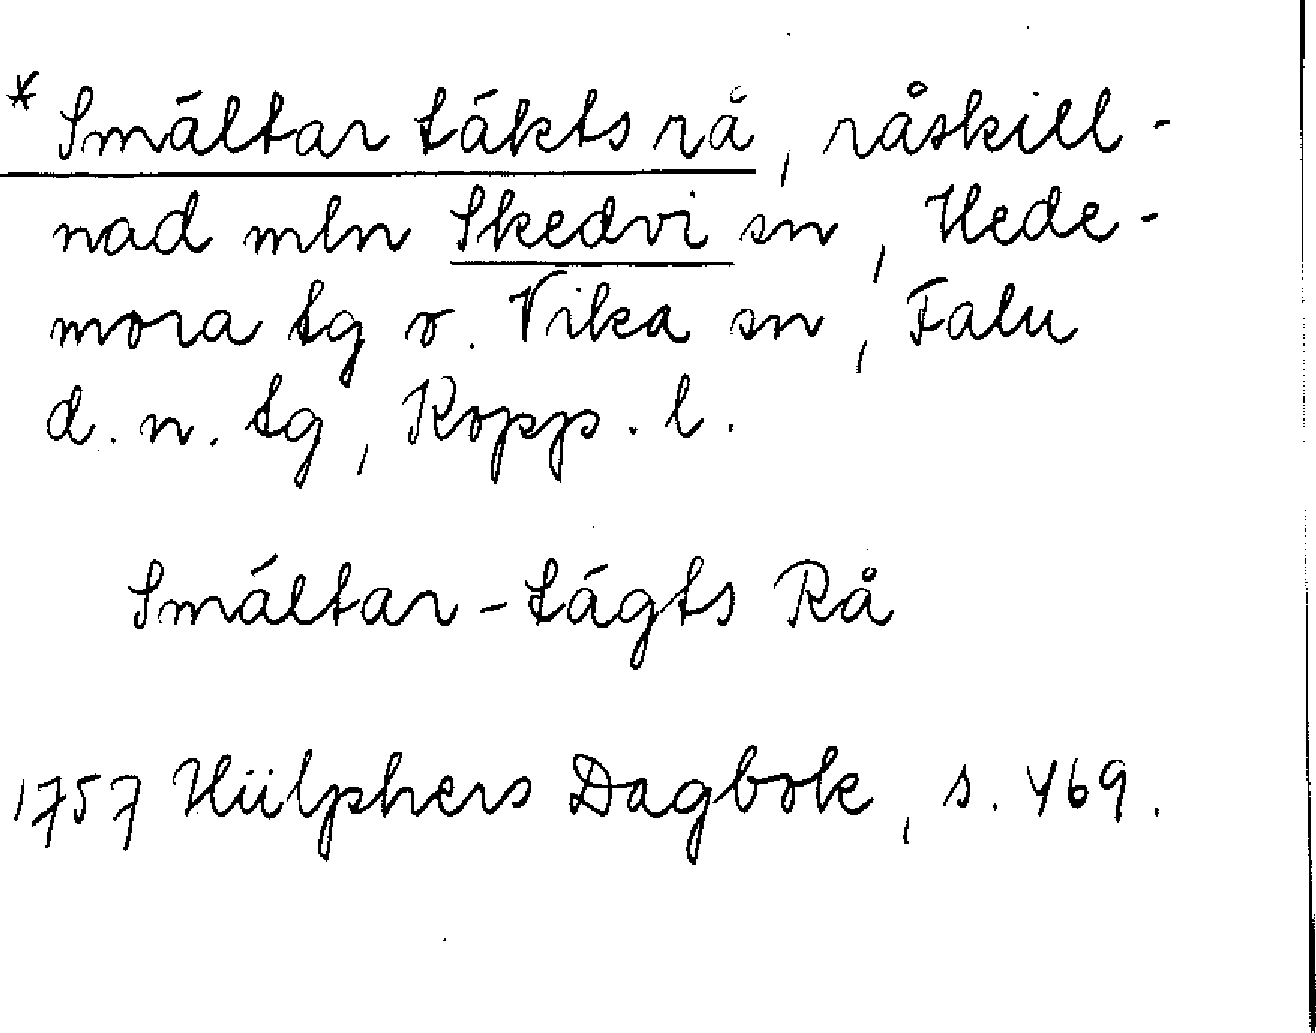 * Smältar täkts rå, råskill-
nad mln Skedvi sn, Hede-
mora tg o. Vika sn, Falu
d. n. tg, Kopp. l.
Smältar-tägts Rå
1757 Hülphers Dagbok, s. 469.